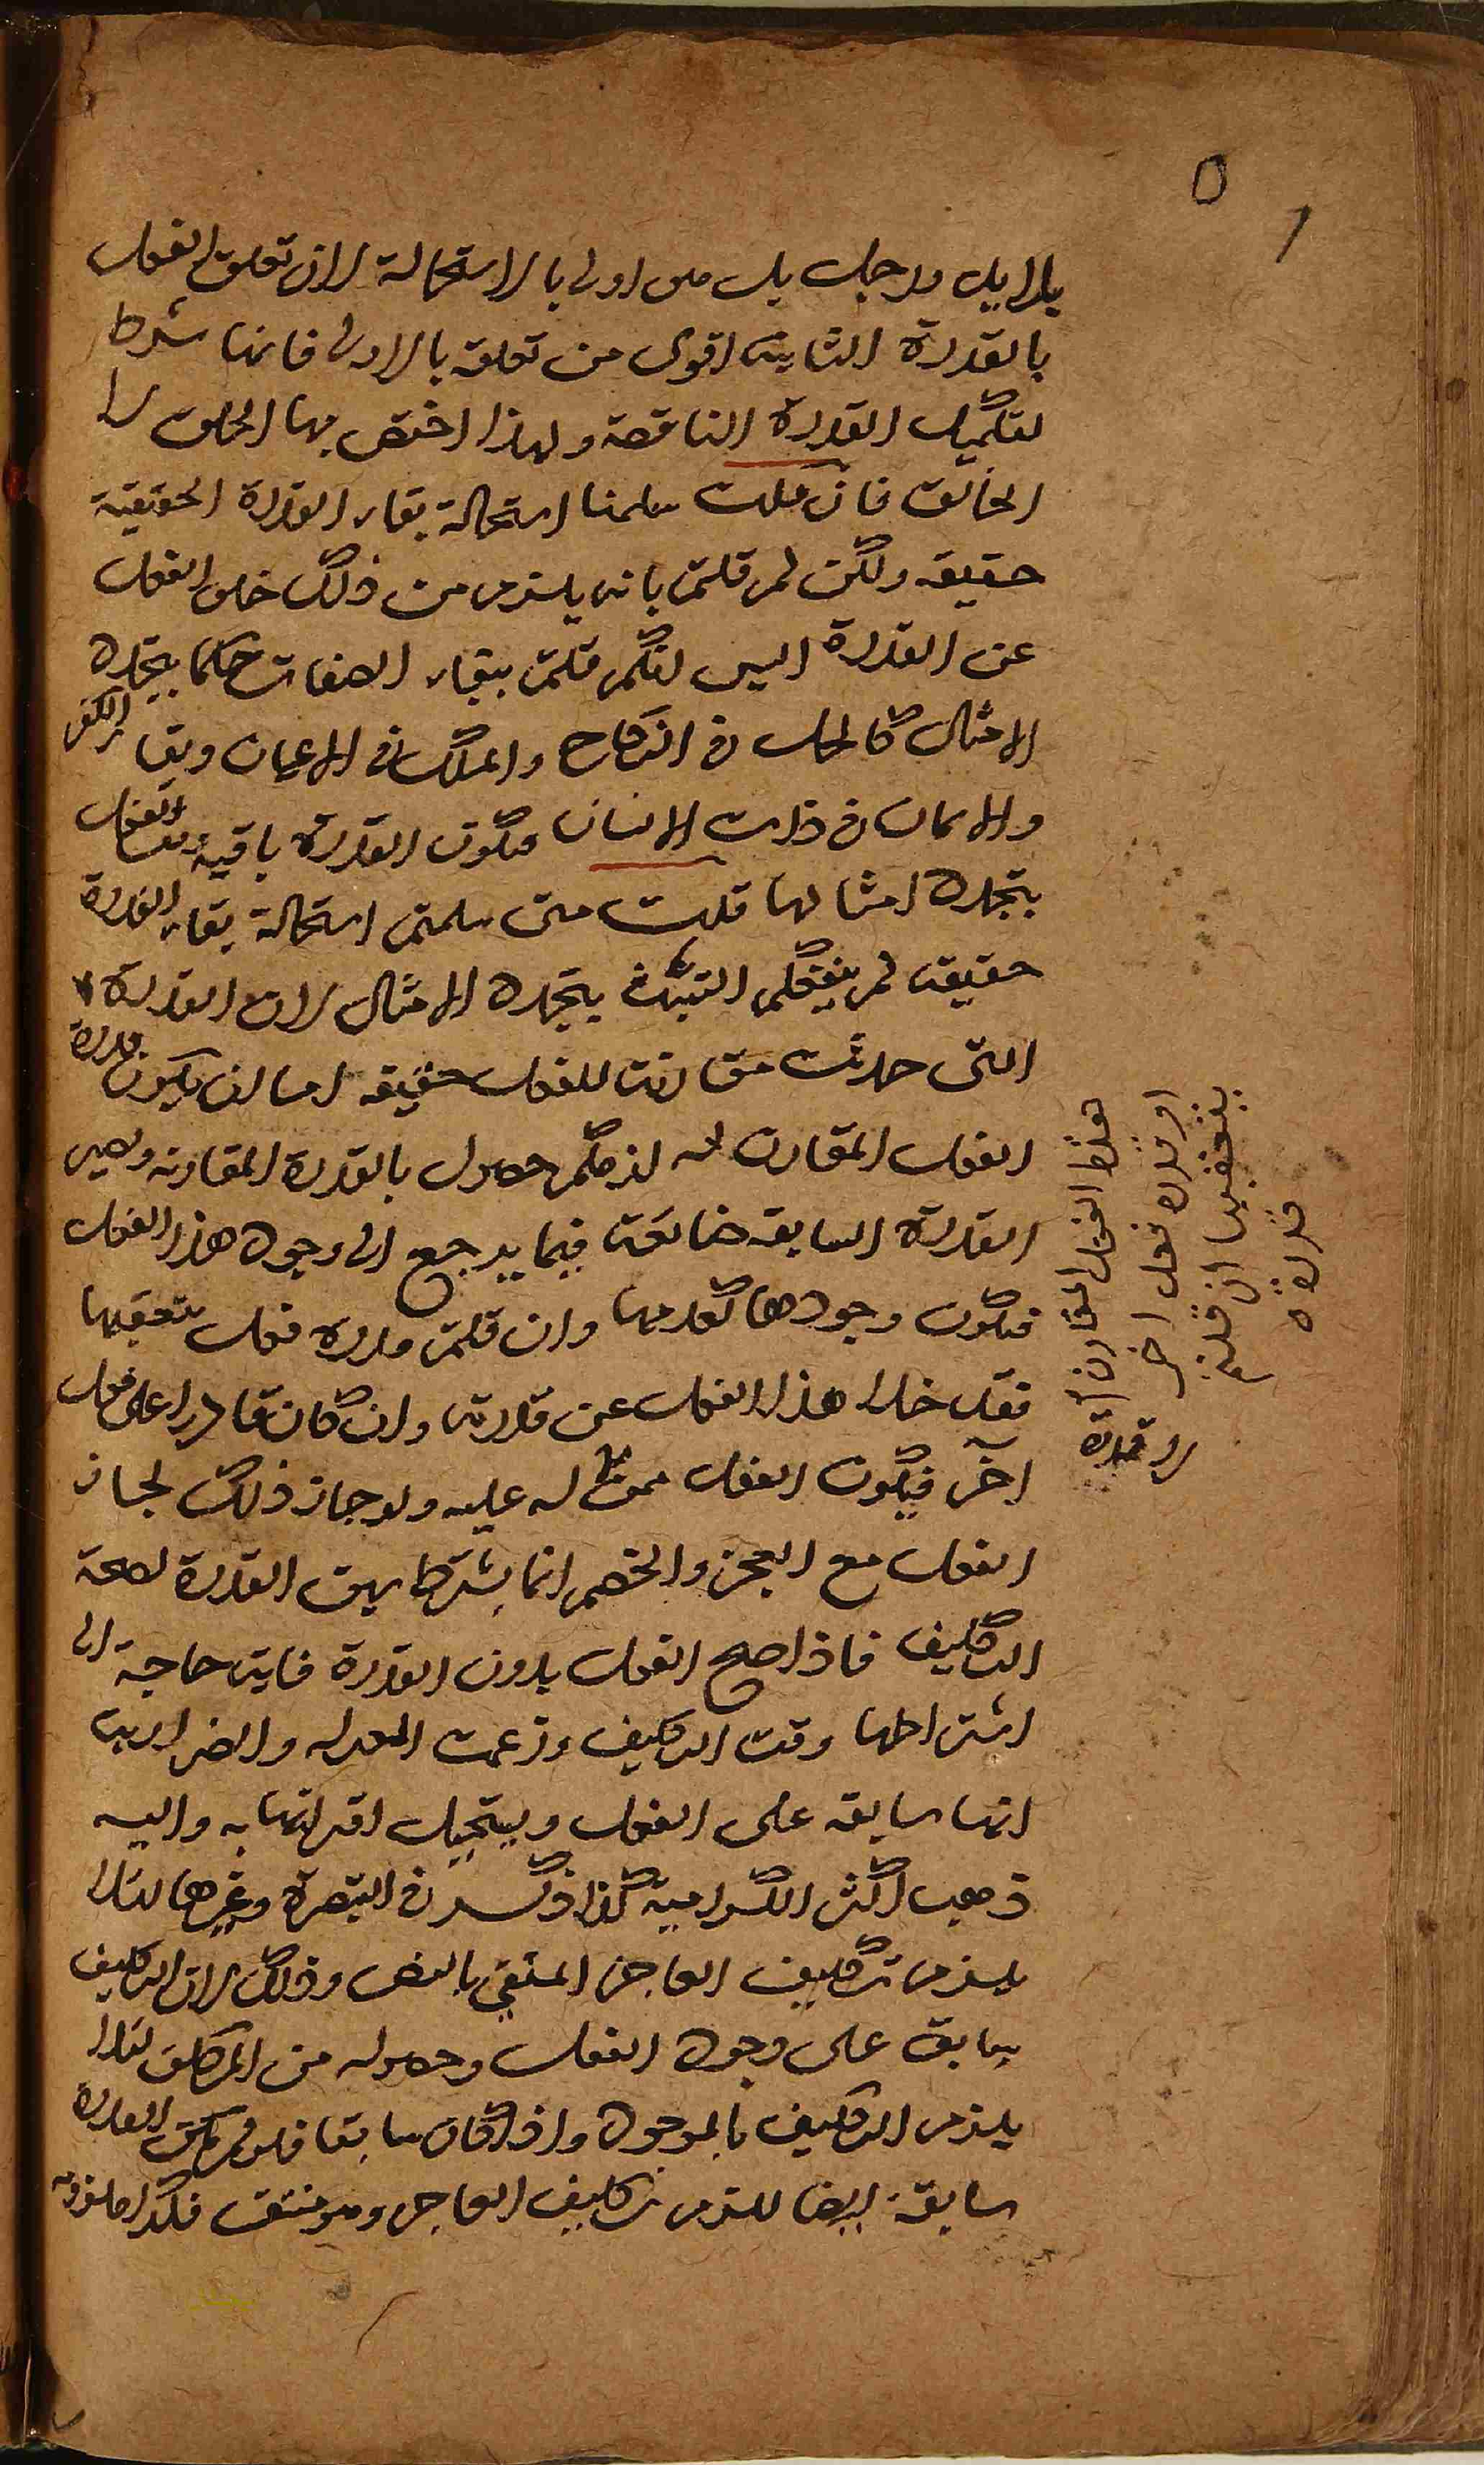 بلا ايد ولا رجل بل هي اولى بالاستحالة لان تعلق الفعل
بالقدرة الثانية اقوى من تعلقه بالاولى فانها شرط
لتكميل القدرة الناقصة ولهذا اختص بها الخلق لا
الخالق فان قلت سلمنا استحالة بقاء القدرة الحقيقية
حقيقة ولكن لم قلتم بانه يلزم من ذلك خلو الفعل
عن القدرة اليس انكم قلتم ببقاء الصفات حكما بتجدد
الامثال كالحل في النكاح والملك في الاعيان وبقاء الكفر
والايمان في ذات الانسان فتكون القدرة باقية وقت الفعل
بتجدد امثالها قلت متى سلمتم استحالة بقاء القدرة
حقيقة لم ينفعكم التشبث بتجدد الامثال لان القدرة
التي حدثت مقارنة للفعل حقيقة اما ان يكون قدرة
الفعل المقارن له لزمكم حصول بالقدرة المقارنة وتصير
القدرة السابقة ضائعة فيما يرجع الى وجود هذا الفعل
فتكون وجودها كعدمها وان قلتم قدرة فعل يتعقبها
فقد خلا هذا الفعل عن قدرته وان كان قادرا على فعل
آخر فيكون الفعل ممن لا له عليه ولو جاز ذلك لجاز
الفعل مع العجز والخصم انما يشترط سبق القدرة لصحة
التكليف فاذا صح الفعل بدون القدرة فاية حاجة الى
اشتراطها وقت التكليف وزعمت المعتزلة والضرارية
انها سابقة على الفعل ويستحيل اقترانها به واليه
ذهب اكثر الكرامية كذا ذكر في التبصرة وغيرها لئلا
يلزم تكليف العاجز المنفي بالنص وذلك لان التكليف
سابق على وجود الفعل وحصوله من المكلف لئلا
يلزم التكليف بالموجود واذا كان سابقا فلو لم تكن القدرة
سابقة ايضا للزم تكليف العاجز وهو منتف فكذا ملزومه
هذا الفعل المقارن
او قدرة فعل اخر
يتعقبها ان قلتم
قدرة